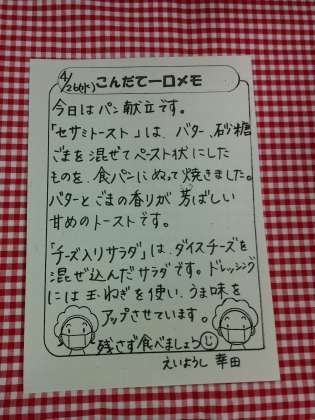 4/26(水) こんだて一口メモ
今日はパン献立です。
「セサミトースト」は、バター、砂糖
ごまを混ぜてペースト状にした
ものを、食パンにぬって焼きました。
バターとごまの香りが芳ばしい
甘めのトーストです。
「チーズ入りサラダ」は、ダイスチーズを
混ぜ込んだサラダです。ドレッシング
には玉ねぎを使い、うま味を
アップさせています。
残さず食べましょう
えいようし 幸田